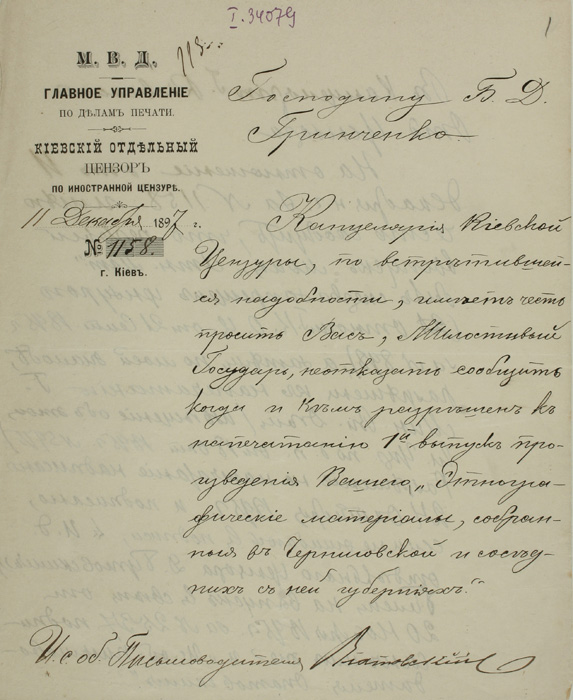 I.34079
1
М. В. Д.
ГЛАВНОЕ УПРАВЛЕНІЕ
ПО ДѢЛАМЪ ПЕЧАТИ.
КІЕВСКІЙ ОТДѢЛЬНЫЙ
ЦЕНЗОРЪ
ПО ИНОСТРАННОЙ ЦЕНЗУРѢ.
11 Декабря 1897 г.
№ 1158.
г. Кіевъ.
Господину Б. Д.
Гринченко.
Канцелярія Кіевской
Цензуры, по встрѣтившей-
ся надобности, имѣетъ честь
просить Васъ, Милостивый
Государь, не отказать сообщить
когда и кѣмъ разрѣшенъ къ
напечатанію 1й выпускъ про-
изведенія Вашего „Этногра-
фическіе матеріалы, собран-
ные въ Черниговской и сосѣд-
нихъ съ ней губерніяхъ."
И. с об. Письмоводителя